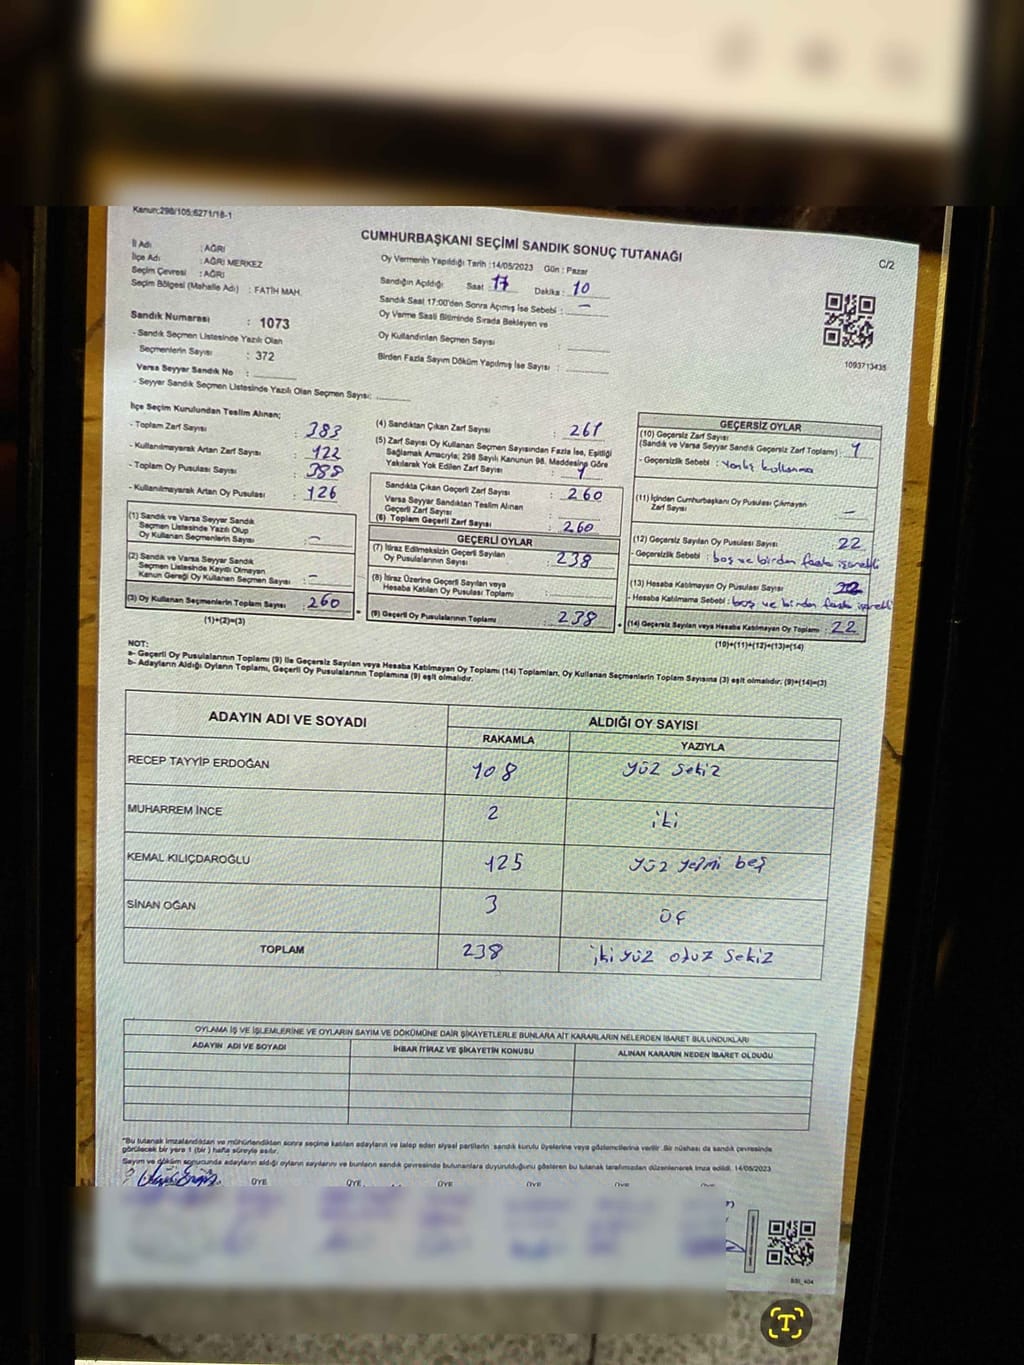 Kanun:298/105;6271/18-1
CUMHURBAŞKANI SEÇİMİ SANDIK SONUÇ TUTANAĞI
C/2
İl Adı : AĞRI
İlçe Adı : AĞRI MERKEZ
Seçim Çevresi : AĞRI
Seçim Bölgesi (Mahalle Adı) : FATİH MAH.
Oy Vermenin Yapıldığı Tarih :14/05/2023 Gün : Pazar
Sandığın Açıldığı Saat 17 Dakika : 10
Sandık Saat 17:00'den Sonra Açımış İse Sebebi : –
Oy Verme Saati Bitiminde Sırada Bekleyen ve
Oy Kullandırılan Seçmen Sayısı :
Birden Fazla Sayım Döküm Yapılmış İse Sayısı :
1093713435
Sandık Numarası : 1073
- Sandık Seçmen Listesinde Yazılı Olan
Seçmenlerin Sayısı : 372
Varsa Seyyar Sandık No :
- Seyyar Sandık Seçmen Listesinde Yazılı Olan Seçmen Sayısı:
İlçe Seçim Kurulundan Teslim Alınan;
- Toplam Zarf Sayısı : 383
- Kullanılmayarak Artan Zarf Sayısı : 122
- Toplam Oy Pusulası Sayısı : 388
- Kullanılmayarak Artan Oy Pusulası : 126
(1) Sandık ve Varsa Seyyar Sandık
Seçmen Listesinde Yazılı Olup
Oy Kullanan Seçmenlerin Sayısı : –
(2) Sandık ve Varsa Seyyar Sandık
Seçmen Listesinde Kayıtlı Olmayan
Kanun Gereği Oy Kullanan Seçmen Sayısı : –
(3) Oy Kullanan Seçmenlerin Toplam Sayısı : 260
(1)+(2)=(3)
(4) Sandıktan Çıkan Zarf Sayısı : 261
(5) Zarf Sayısı Oy Kullanan Seçmen Sayısından Fazla İse, Eşitliği
Sağlamak Amacıyla; 298 Sayılı Kanunun 98. Maddesine Göre
Yakılarak Yok Edilen Zarf Sayısı : 1
Sandıkta Çıkan Geçerli Zarf Sayısı : 260
Varsa Seyyar Sandıktan Teslim Alınan
Geçerli Zarf Sayısı :
(6) Toplam Geçerli Zarf Sayısı : 260
GEÇERLİ OYLAR
(7) İtiraz Edilmeksizin Geçerli Sayılan
Oy Pusulalarının Sayısı : 238
(8) İtiraz Üzerine Geçerli Sayılan veya
Hesaba Katılan Oy Pusulası Toplamı :
(9) Geçerli Oy Pusulalarının Toplamı : 238
GEÇERSİZ OYLAR
(10) Geçersiz Zarf Sayısı
(Sandık ve Varsa Seyyar Sandık Geçersiz Zarf Toplamı) : 1
- Geçersizlik Sebebi : Yanlış kullanma
(11) İçinden Cumhurbaşkanı Oy Pusulası Çıkmayan
Zarf Sayısı : –
(12) Geçersiz Sayılan Oy Pusulası Sayısı : 22
- Geçersizlik Sebebi : boş ve birden fazla işaretli
(13) Hesaba Katılmayan Oy Pusulası Sayısı : 22
- Hesaba Katılmama Sebebi : boş ve birden fazla işaretli
(14) Geçersiz Sayılan veya Hesaba Katılmayan Oy Toplamı : 22
(10)+(11)+(12)+(13)=(14)
NOT:
a- Geçerli Oy Pusulalarının Toplamı (9) ile Geçersiz Sayılan veya Hesaba Katılmayan Oy Toplamı (14) Toplamları, Oy Kullanan Seçmenlerin Toplam Sayısına (3) eşit olmalıdır; (9)+(14)=(3)
b- Adayların Aldığı Oyların Toplamı, Geçerli Oy Pusulalarının Toplamına (9) eşit olmalıdır.
ADAYIN ADI VE SOYADI ALDIĞI OY SAYISI
RAKAMLA YAZIYLA
RECEP TAYYİP ERDOĞAN 108 yüz sekiz
MUHARREM İNCE 2 iki
KEMAL KILIÇDAROĞLU 125 yüz yirmi beş
SİNAN OĞAN 3 üç
TOPLAM 238 iki yüz otuz sekiz
OYLAMA İŞ VE İŞLEMLERİNE VE OYLARIN SAYIM VE DÖKÜMÜNE DAİR ŞİKAYETLERLE BUNLARA AİT KARARLARIN NELERDEN İBARET BULUNDUKLARI
ADAYIN ADI VE SOYADI İHBAR İTİRAZ VE ŞİKAYETİN KONUSU ALINAN KARARIN NEDEN İBARET OLDUĞU
"Bu tutanak imzalandıktan ve mühürlendikten sonra seçime katılan adayların ve talep eden siyasi partilerin sandık kurulu üyelerine veya gözlemcilerine verilir. Bir nüshası da sandık çevresinde
görülecek bir yere 1 (bir) hafta süreyle asılır.
Sayım ve döküm sonucunda adayların aldığı oyların sayılarını ve bunların sandık çevresinde bulunanlara duyurulduğunu gösteren bu tutanak tarafımızdan düzenlenerek imza edildi. 14/05/2023
ÜYE ÜYE ÜYE ÜYE ÜYE ÜYE
BSI_404
T